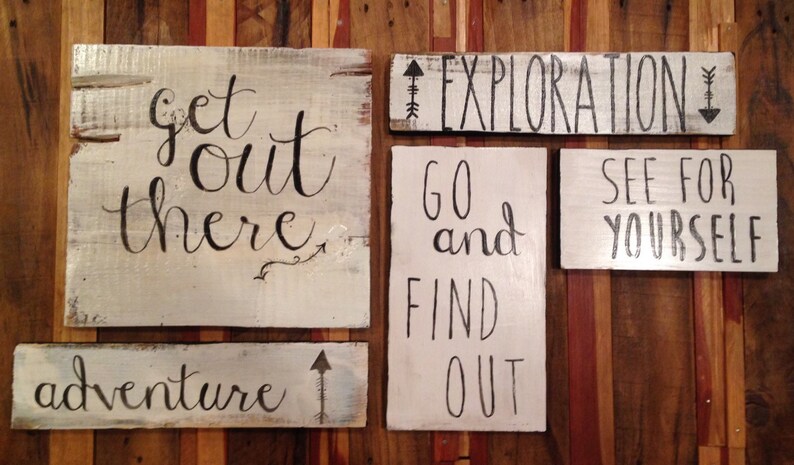 get
out
there
adventure
EXPLORATION
GO
and
FIND
OUT
SEE FOR
YOURSELF